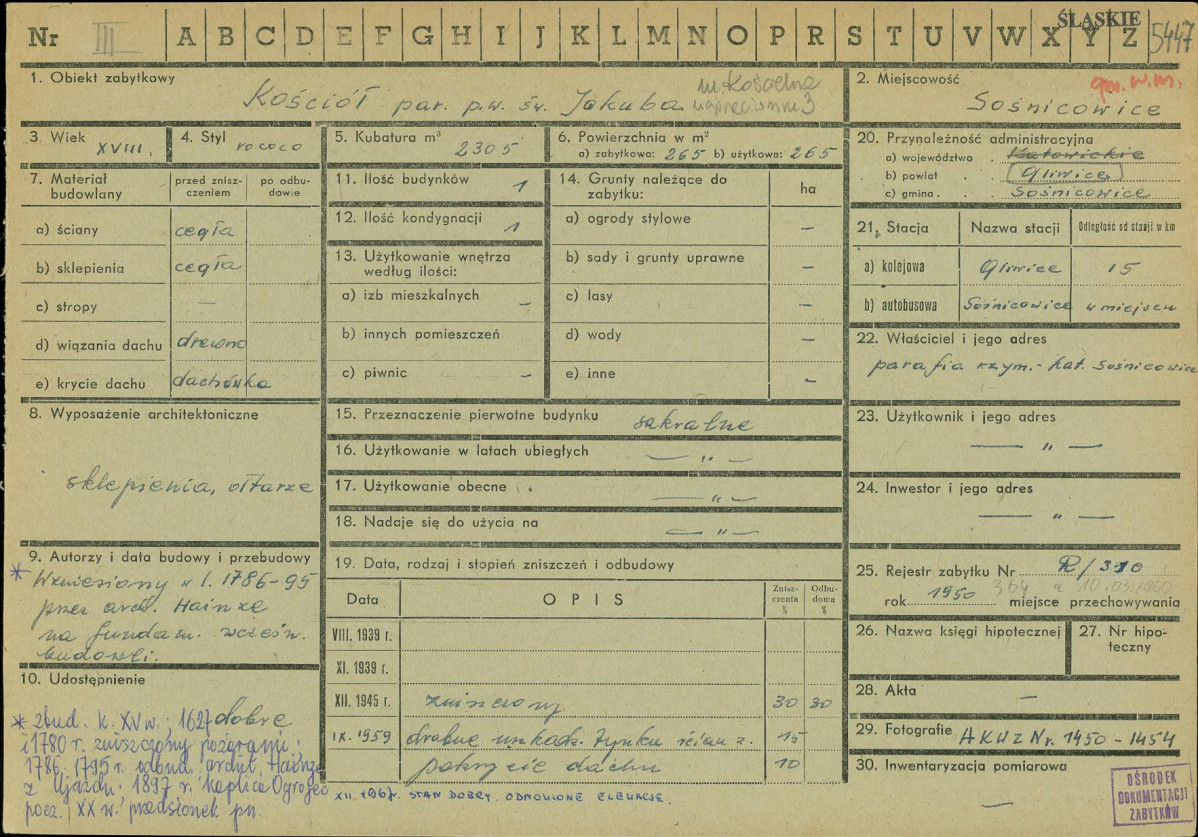 Nr III A B C D E F G H I J K L M N O P R S T U V W X Y Z ŚLĄSKIE 5447
1. Obiekt zabytkowy
Kościół par. p.w. św. Jakuba
ul. Kościelna
naprzeciw nru 3
2. Miejscowość
gm. w.m.
Sośnicowice
3. Wiek XVIII.
4. Styl rococo
5. Kubatura m³ 2305
6. Powierzchnia w m²
a) zabytkowa: 265 b) użytkowa: 265
20. Przynależność administracyjna
a) województwo Katowickie
b) powiat Gliwice
c) gmina Sośnicowice
7. Materiał budowlany
przed zniszczeniem
po odbudowie
a) ściany cegła
b) sklepienia cegła
c) stropy —
d) wiązania dachu drewno
e) krycie dachu dachówka
11. Ilość budynków 1
12. Ilość kondygnacji 1
13. Użytkowanie wnętrza
według ilości:
a) izb mieszkalnych –
b) innych pomieszczeń
c) piwnic –
14. Grunty należące do
zabytku: ha
a) ogrody stylowe –
b) sady i grunty uprawne –
c) lasy –
d) wody –
e) inne –
21. Stacja Nazwa stacji Odległość od stacji w km
a) kolejowa Gliwice 15
b) autobusowa Sośnicowice w miejscu
22. Właściciel i jego adres
parafia rzym.-kat. Sośnicowice
8. Wyposażenie architektoniczne
sklepienia, ołtarze
15. Przeznaczenie pierwotne budynku sakralne
16. Użytkowanie w latach ubiegłych — „ —
17. Użytkowanie obecne — „ —
18. Nadaje się do użycia na — „ —
23. Użytkownik i jego adres
— „ —
24. Inwestor i jego adres
— „ —
9. Autorzy i data budowy i przebudowy
* Wzniesiony w l. 1786-95
przez arch. Hainze
na fundam. wcześn.
budowli.
19. Data, rodzaj i stopień zniszczeń i odbudowy
Data OPIS Zniszczenia % Odbudowa %
VIII. 1939 r.
XI. 1939 r.
XII. 1945 r. zniszczony 30 30
IX. 1959 drobne uszkodz. tynku ścian z. 15
pokrycie dachu 10
XII. 1967. STAN DOBRY. ODNOWIONE ELEWACJE.
25. Rejestr zabytku Nr R/310
364 z 10.03.1960
rok 1950 miejsce przechowywania
26. Nazwa księgi hipotecznej
27. Nr hipoteczny
28. Akta –
29. Fotografie AKUZ Nr. 1450 - 1454
30. Inwentaryzacja pomiarowa
—
10. Udostępnienie
dobre
* zbud. k. XV w.; 1627
i 1780 r. zniszczony pożarami;
1786-1795 r. odbud. archit. Hainze
z Ujazdu. 1897 r. kaplica Ogrojec
pocz. XX w. przedsionek pn.
OŚRODEK
DOKUMENTACJI
ZABYTKÓW